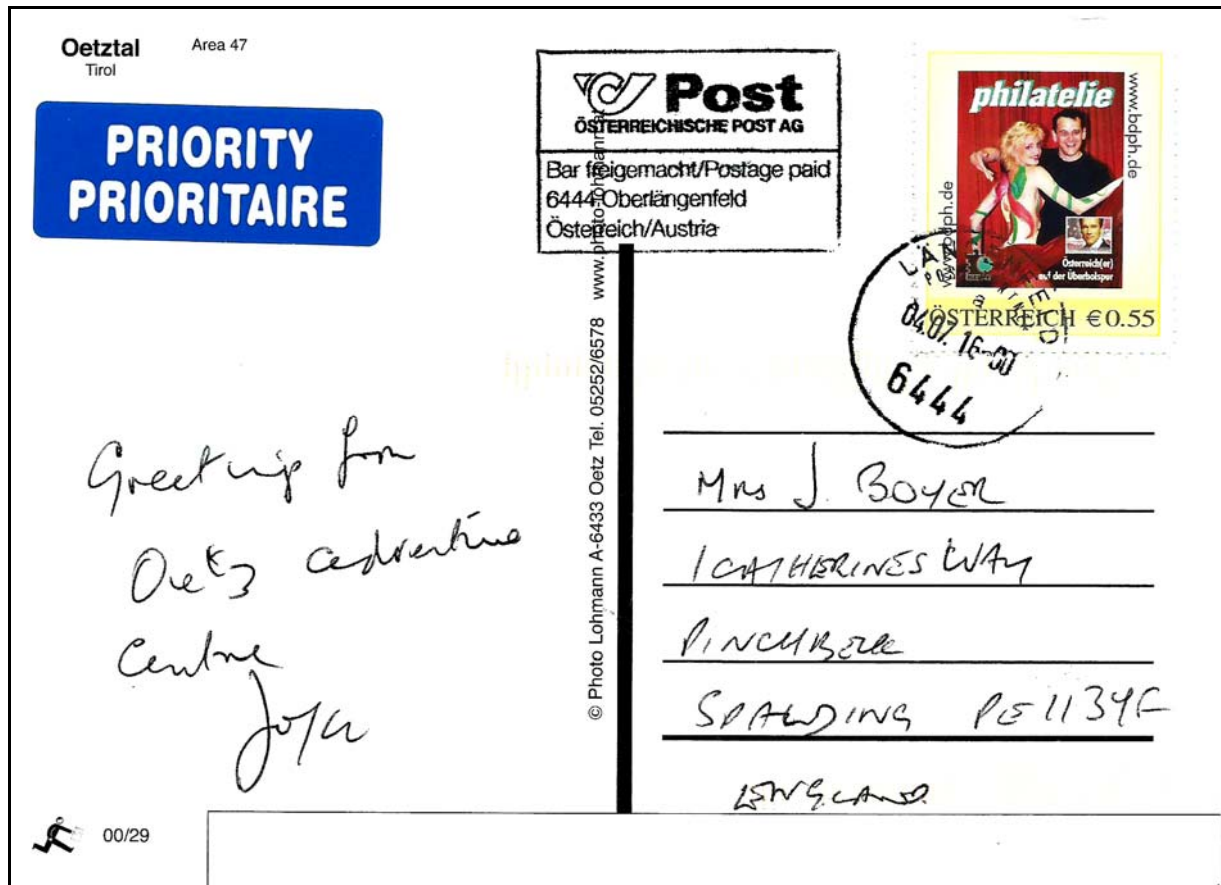 Oetztal
Area 47
Tirol
PRIORITY
PRIORITAIRE
Post
ÖSTERREICHISCHE POST AG
Bar freigemacht/Postage paid
6444 Oberlängenfeld
Österreich/Austria
philatelie
www.bdph.de
www.bdph.de
Österreich(er)
auf der Überholspur
ÖSTERREICH €0.55
04.07. 16-00
6444
© Photo Lohmann A-6433 Oetz Tel. 05252/6578 www.photo-lohmann.at
Greetings from
Oetz adventure
Centre
Joyce
Mrs J. BOYER
1 CATHERINES WAY
PINCHBECK
SPALDING PE11 3YF
ENGLAND.
00/29